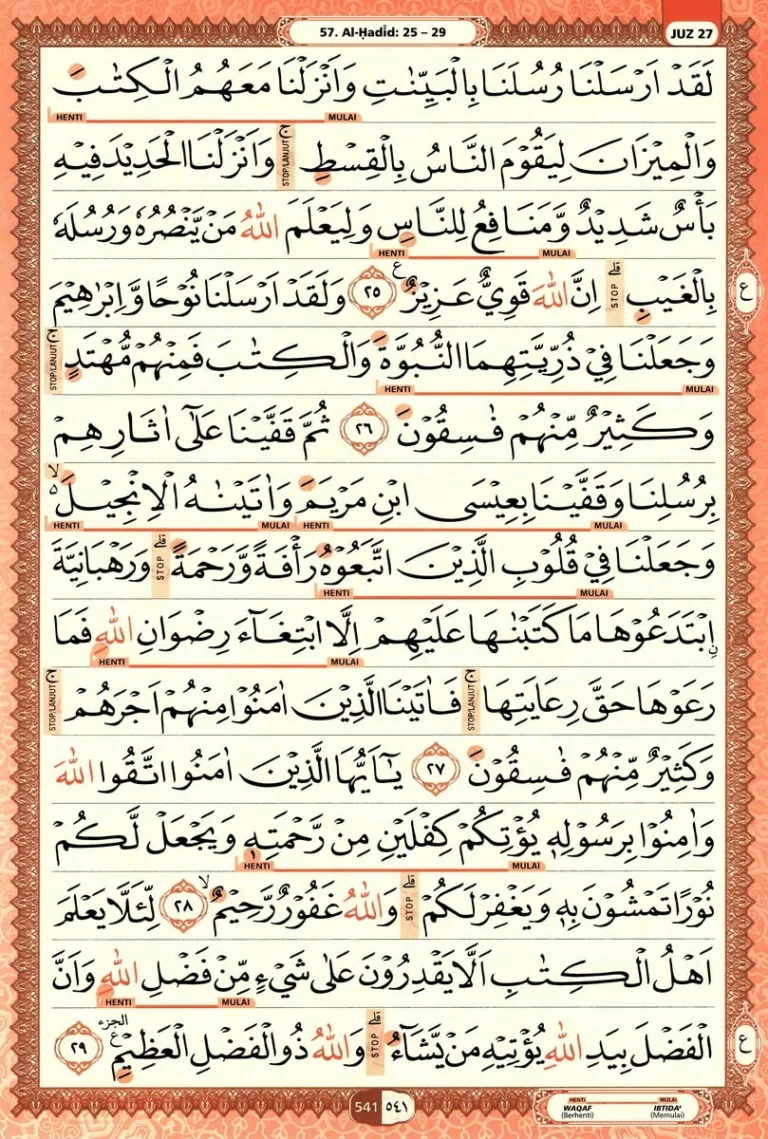 57. Al-Ḥadīd: 25 – 29
JUZ 27
لَقَدْ اَرْسَلْنَا رُسُلَنَا بِالْبَيِّنٰتِ وَاَنْزَلْنَا مَعَهُمُ الْكِتٰبَ
HENTI MULAI
وَالْمِيْزَانَ لِيَقُوْمَ النَّاسُ بِالْقِسْطِۚ وَاَنْزَلْنَا الْحَدِيْدَ فِيْهِ
STOP/LANJUT
بَأْسٌ شَدِيْدٌ وَّمَنَافِعُ لِلنَّاسِ وَلِيَعْلَمَ اللّٰهُ مَنْ يَّنْصُرُهٗ وَرُسُلَهٗ
HENTI MULAI
بِالْغَيْبِۗ اِنَّ اللّٰهَ قَوِيٌّ عَزِيْزٌ ࣖ ٢٥ وَلَقَدْ اَرْسَلْنَا نُوْحًا وَّاِبْرٰهِيْمَ
STOP
ع
وَجَعَلْنَا فِيْ ذُرِّيَّتِهِمَا النُّبُوَّةَ وَالْكِتٰبَ فَمِنْهُمْ مُّهْتَدٍۚ
STOP/LANJUT
HENTI MULAI
وَكَثِيْرٌ مِّنْهُمْ فٰسِقُوْنَ ٢٦ ثُمَّ قَفَّيْنَا عَلٰٓى اٰثَارِهِمْ
بِرُسُلِنَا وَقَفَّيْنَا بِعِيْسَى ابْنِ مَرْيَمَ وَاٰتَيْنٰهُ الْاِنْجِيْلَ ەۙ
HENTI MULAI HENTI MULAI
وَجَعَلْنَا فِيْ قُلُوْبِ الَّذِيْنَ اتَّبَعُوْهُ رَأْفَةً وَّرَحْمَةًۗ وَرَهْبَانِيَّةَ
STOP
HENTI MULAI
ࣙابْتَدَعُوْهَا مَا كَتَبْنٰهَا عَلَيْهِمْ اِلَّا ابْتِغَاۤءَ رِضْوَانِ اللّٰهِ فَمَا
HENTI MULAI
رَعَوْهَا حَقَّ رِعَايَتِهَاۚ فَاٰتَيْنَا الَّذِيْنَ اٰمَنُوْا مِنْهُمْ اَجْرَهُمْۚ
STOP/LANJUT STOP/LANJUT
وَكَثِيْرٌ مِّنْهُمْ فٰسِقُوْنَ ٢٧ يٰٓاَيُّهَا الَّذِيْنَ اٰمَنُوا اتَّقُوا اللّٰهَ
وَاٰمِنُوْا بِرَسُوْلِهٖ يُؤْتِكُمْ كِفْلَيْنِ مِنْ رَّحْمَتِهٖ وَيَجْعَلْ لَّكُمْ
HENTI MULAI
نُوْرًا تَمْشُوْنَ بِهٖ وَيَغْفِرْ لَكُمْۗ وَاللّٰهُ غَفُوْرٌ رَّحِيْمٌۙ ٢٨ لِّئَلَّا يَعْلَمَ
STOP
اَهْلُ الْكِتٰبِ اَلَّا يَقْدِرُوْنَ عَلٰى شَيْءٍ مِّنْ فَضْلِ اللّٰهِ وَاَنَّ
HENTI MULAI
الْفَضْلَ بِيَدِ اللّٰهِ يُؤْتِيْهِ مَنْ يَّشَاۤءُۗ وَاللّٰهُ ذُو الْفَضْلِ الْعَظِيْمِ ࣖ ٢٩
STOP
الجزء
ع
541 ٥٤١
HENTI MULAI
WAQAF IBTIDA'
(Berhenti) (Memulai)